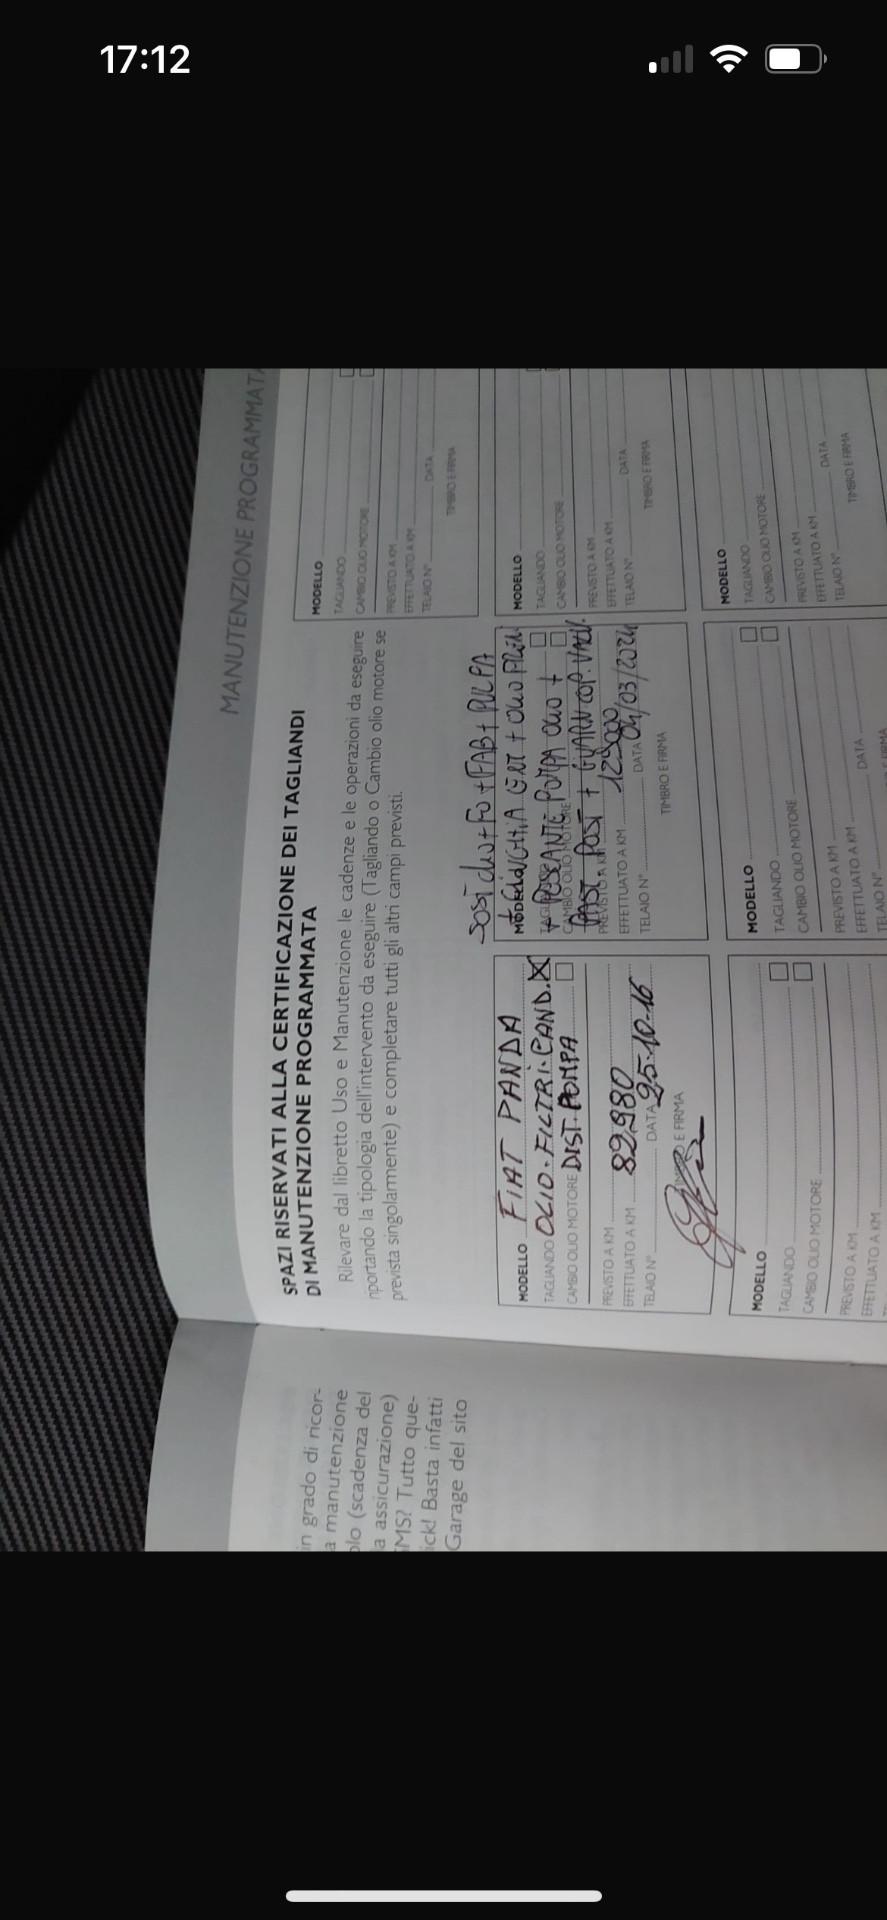 17:12
MANUTENZIONE PROGRAMMAT
in grado di ricor-
a manutenzione
olo (scadenza del
la assicurazione)
MS? Tutto que-
ick! Basta infatti
Garage del sito
SPAZI RISERVATI ALLA CERTIFICAZIONE DEI TAGLIANDI
DI MANUTENZIONE PROGRAMMATA
Rilevare dal libretto Uso e Manutenzione le cadenze e le operazioni da eseguire
riportando la tipologia dell'intervento da eseguire (Tagliando o Cambio olio motore se
prevista singolarmente) e completare tutti gli altri campi previsti.
MODELLO
TAGLIANDO
CAMBIO OLIO MOTORE
PREVISTO A KM
EFFETTUATO A KM
TELAIO N° DATA
TIMBRO E FIRMA
MODELLO FIAT PANDA
TAGLIANDO OLIO-FILTRI-CAND.
CAMBIO OLIO MOTORE DIST. POMPA
PREVISTO A KM
EFFETTUATO A KM 82.980
TELAIO N° DATA 25-10-16
E FIRMA
+ FO + FAB +
MODELLO + OLIO
TAGL POMPA OLIO +
CAMBIO OLIO MOTORE
PREVISTO A KM POST +
EFFETTUATO A KM
TELAIO N° DATA 04/03/2024
TIMBRO E FIRMA
MODELLO
TAGLIANDO
CAMBIO OLIO MOTORE
PREVISTO A KM
EFFETTUATO A KM
TELAIO N° DATA
TIMBRO E FIRMA
MODELLO
TAGLIANDO
CAMBIO OLIO MOTORE
PREVISTO A KM
EFFETTUATO A KM
MODELLO
TAGLIANDO
CAMBIO OLIO MOTORE
PREVISTO A KM
EFFETTUATO A KM DATA
TELAIO N°
MODELLO
TAGLIANDO
CAMBIO OLIO MOTORE
PREVISTO A KM
EFFETTUATO A KM
TELAIO N° DATA
TIMBRO E FIRMA